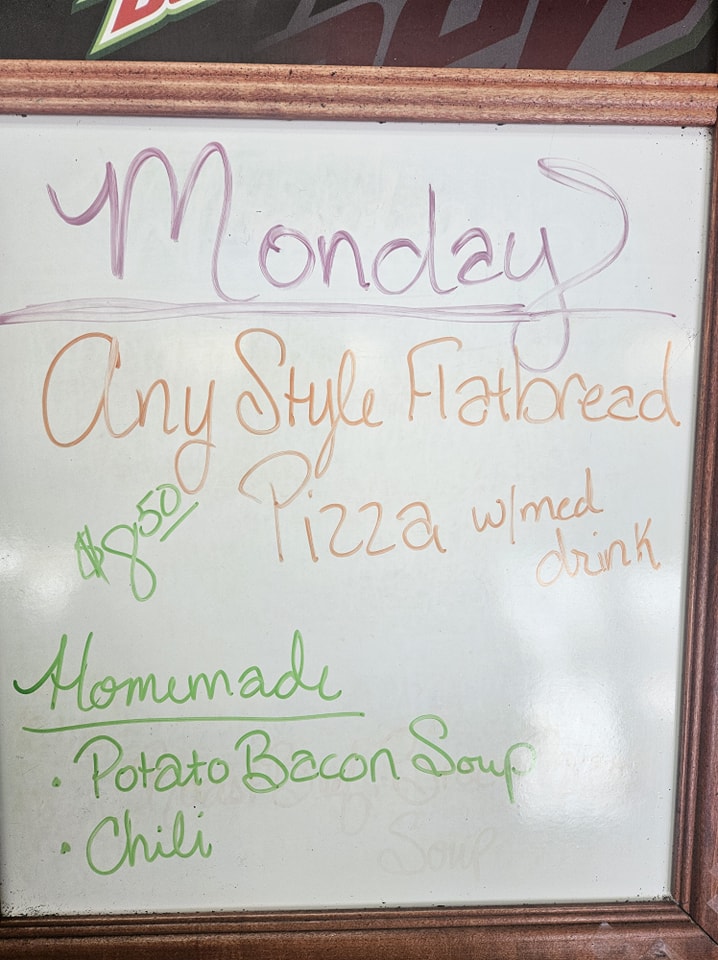 Monday
Any Style Flatbread
Pizza w/med
drink
$8.50
Homemade
• Potato Bacon Soup
• Chili
Soup